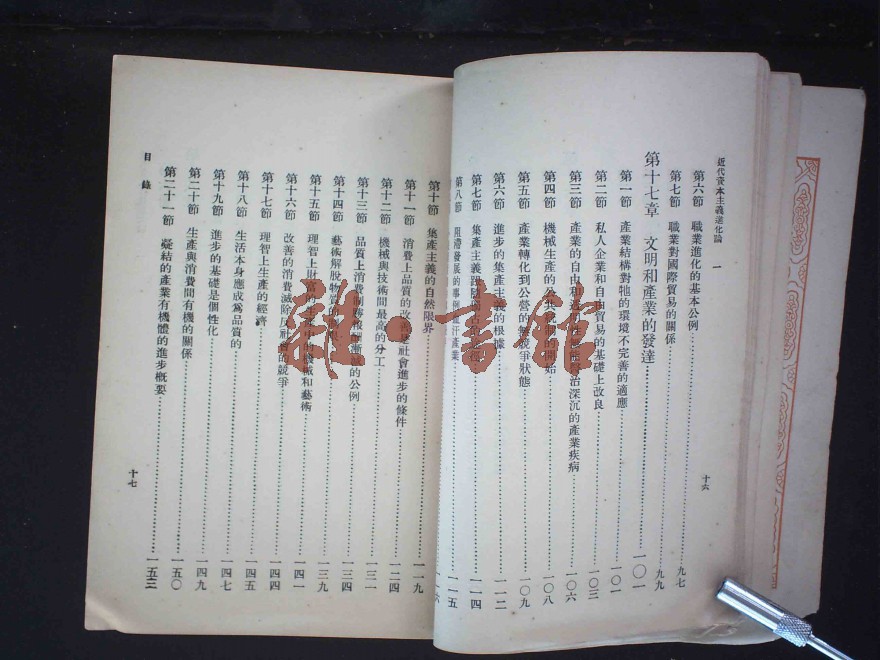 近代資本主義進化論 一
第六節 職業進化的基本公例 九七
第七節 職業對國際貿易的關係 九九
第十七章 文明和產業的發達 一〇一
第一節 產業結構對牠的環境不完善的適應 一〇一
第二節 私人企業和自由貿易的基礎上改良 一〇三
第三節 產業的自由和 治深沉的產業疾病 一〇六
第四節 機械生產的公共 制的開始 一〇八
第五節 產業轉化到公營的無競爭狀態 一〇九
第六節 進步的集產主義的根據 一一二
第七節 集產主義跟隨 一一四
第八節 阻滯發展的事例 血汗產業 一一五
十六
第十節 集產主義的自然限界 一一九
第十一節 消費上品質的改善是社會進步的條件 一二四
第十二節 機械與技術間最高的分工 一三一
第十三節 品質上消費制 報酬漸減的公例 一三四
第十四節 藝術解脫物質 一三九
第十五節 理智上財富的 機械和藝術 一四一
第十六節 改善的消費滅除反社會的競爭 一四四
第十七節 理智上生產的經濟 一四五
第十八節 生活本身應成爲品質的 一四七
第十九節 進步的基礎是個性化 一四九
第二十節 生產與消費間有機的關係 一五〇
第二十一節 凝結的產業有機體的進步概要 一五三
目錄
十七
雜·書館